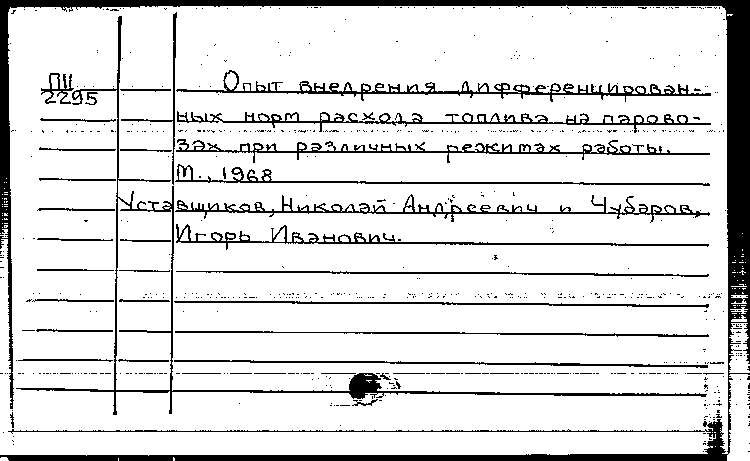 ПII
2295
Опыт внедрения дифференцирован-
ных норм расхода топлива на парово-
зах при различных режимах работы.
М., 1968
Уставщиков, Николай Андреевич и Чубаров,
Игорь Иванович.